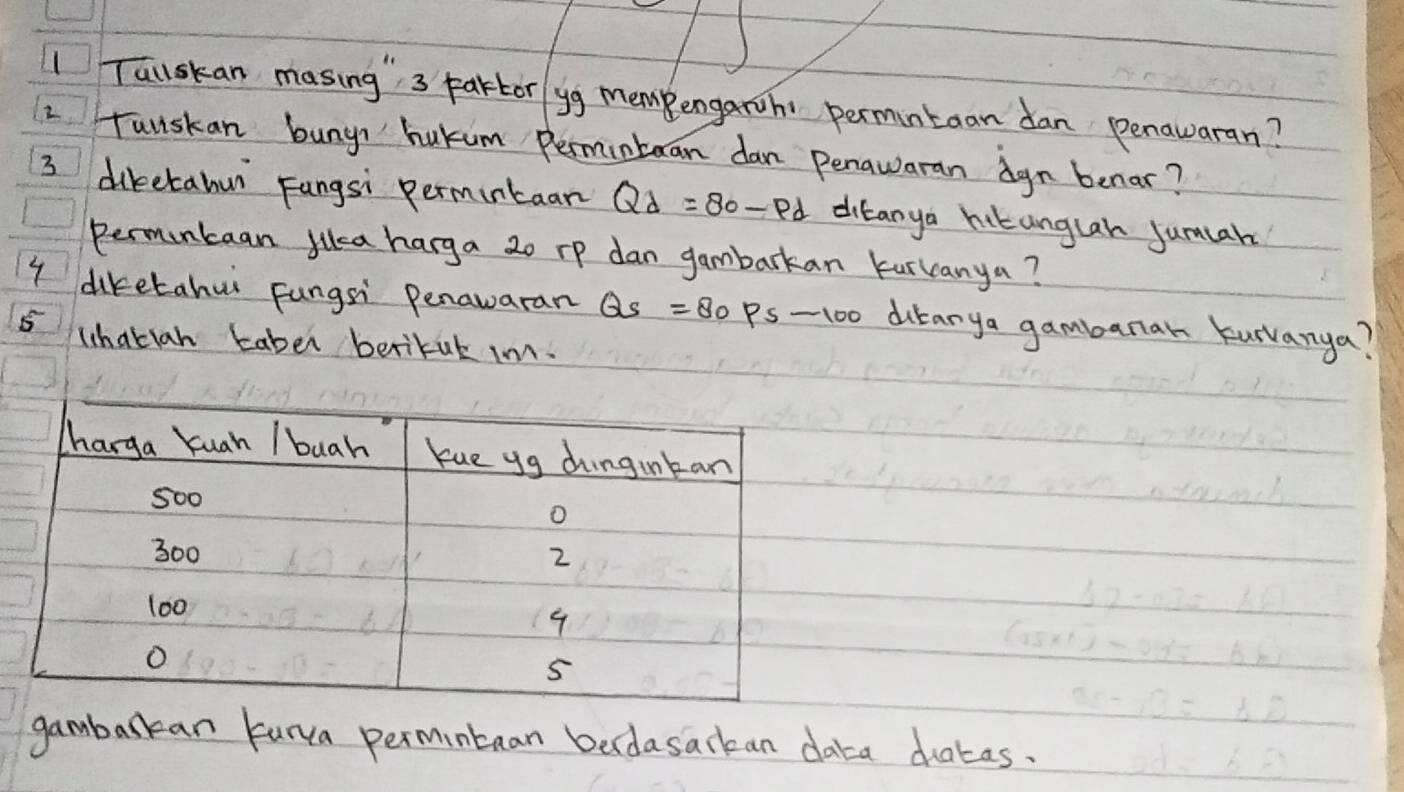 1 Tuliskan masing" 3 faktor yg mempengaruhi permintaan dan penawaran?
2 Tuliskan bunyi hukum Permintaan dan penawaran dgn benar?
3 diketahui Fungsi permintaan Qd = 80 - Pd ditanya hitunglah jumlah
Permintaan jika harga 20 rp dan gambarkan kurvanya?
4 diketahui Fungsi Penawaran Qs = 80 Ps - 100 ditanya gambarlah kurvanya?
5 lihatlah tabel berikut ini.
harga kuah / buah kue yg diinginkan
500 0
300 2
100 4
0 5
gambarkan kurva permintaan berdasarkan data diatas.